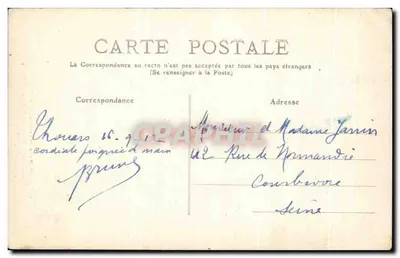 CARTE POSTALE
La Correspondance au recto n'est pas acceptée par tous les pays étrangers
(Se renseigner à la Poste)
Correspondance
Adresse
Thouars 16-9-12
cordiale poignée de main
Brunet
Monsieur et Madame Janvin
42 Rue de Normandie
Courbevoie
Seine